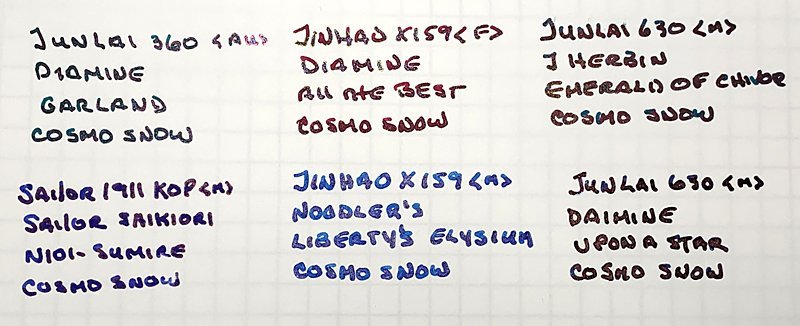 JUNLAI 360 <AU>
DIAMINE
GARLAND
COSMO SNOW
JINHAO X159 <F>
DIAMINE
All the BEST
COSMO SNOW
JUNLAI 630 <M>
J HERBIN
EMERALD OF CHIVOR
COSMO SNOW
SAilor 1911 KOP <M>
SAILOR SAIKIORI
NIOI-SUMIRE
COSMO SNOW
JINHAO X159 <M>
NOODLER'S
LIBERTY'S ELYSIUM
COSMO SNOW
JUNLAI 630 <M>
DAIMINE
UPON A STAR
COSMO SNOW